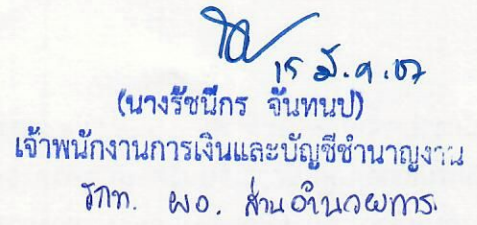 15 มี.ค. 67
(นางรัชนีกร จันทนป)
เจ้าพนักงานการเงินและบัญชีชำนาญงาน
รกท. ผอ. ส่วนอำนวยการ